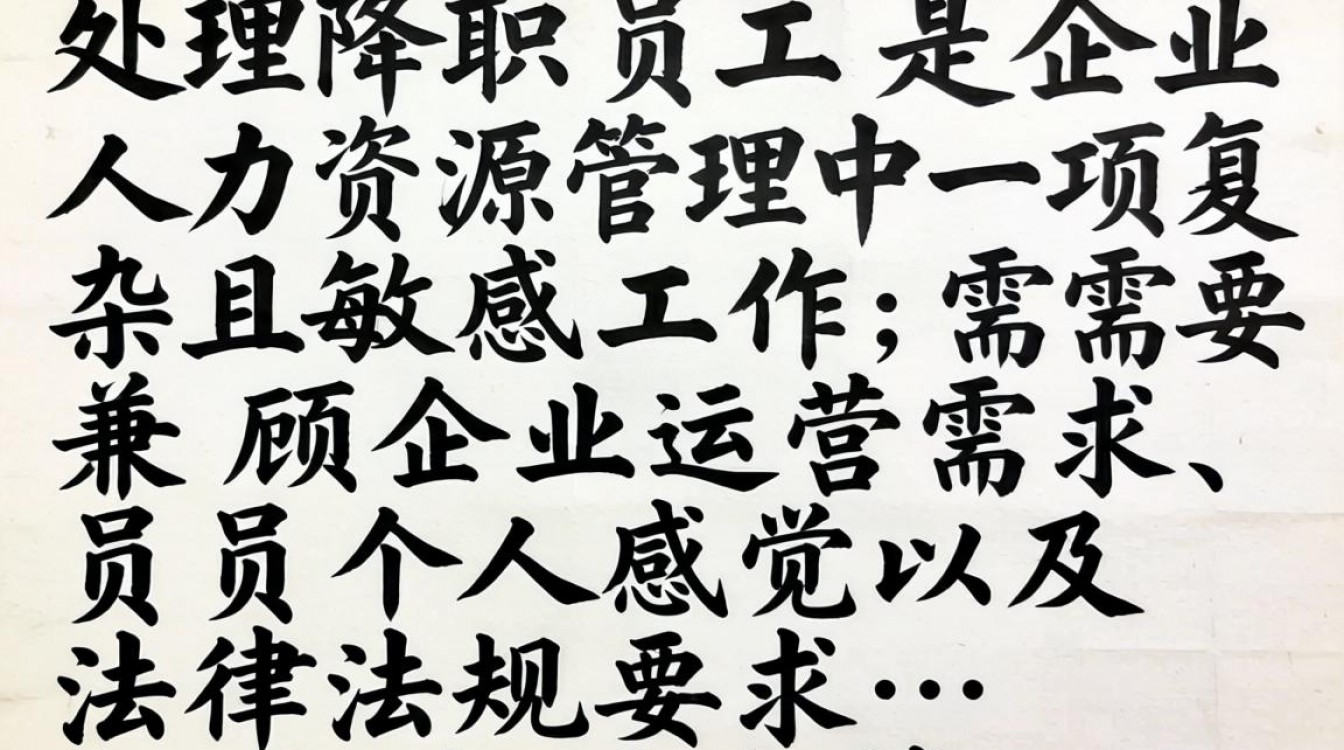 处理降职员工是企业
人力资源管理中一项复
杂且敏感工作；需需要
兼顾企业运营需求、
员员个人感觉以及
法律法规要求…